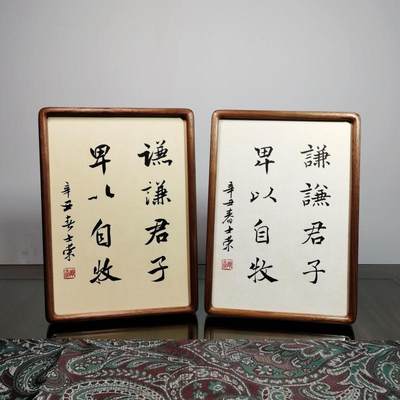 謙謙君子
卑以自牧
辛丑春士荣
謙謙君子
卑以自牧
辛丑春士荣